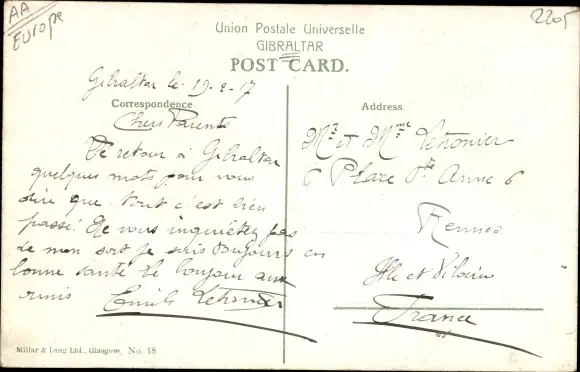 AA
Europe
2205
Union Postale Universelle
GIBRALTAR
POST CARD.
Gibraltar le 19-2-17
Correspondence
Chers Parents
De retour à Gibraltar
quelques mots pour vous
dire que tout c'est bien
passé. Ne vous inquiétez pas
de mon sort je suis toujours en
bonne santé le bonjour aux
amis Emile Letronier
Address
Mr et Mme Letronier
6 Place Ste Anne 6
Rennes
Ille et Vilaine
France
Millar & Lang Ltd., Glasgow, No. 18